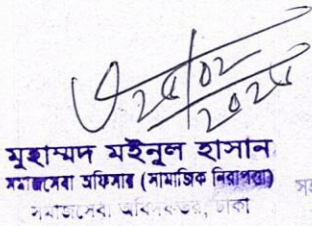 ২৫/০২
২০২৫
মুহাম্মদ মইনুল হাসান
সমাজসেবা অফিসার (সামাজিক নিরাপত্তা)
সমাজসেবা অধিদফতর, ঢাকা